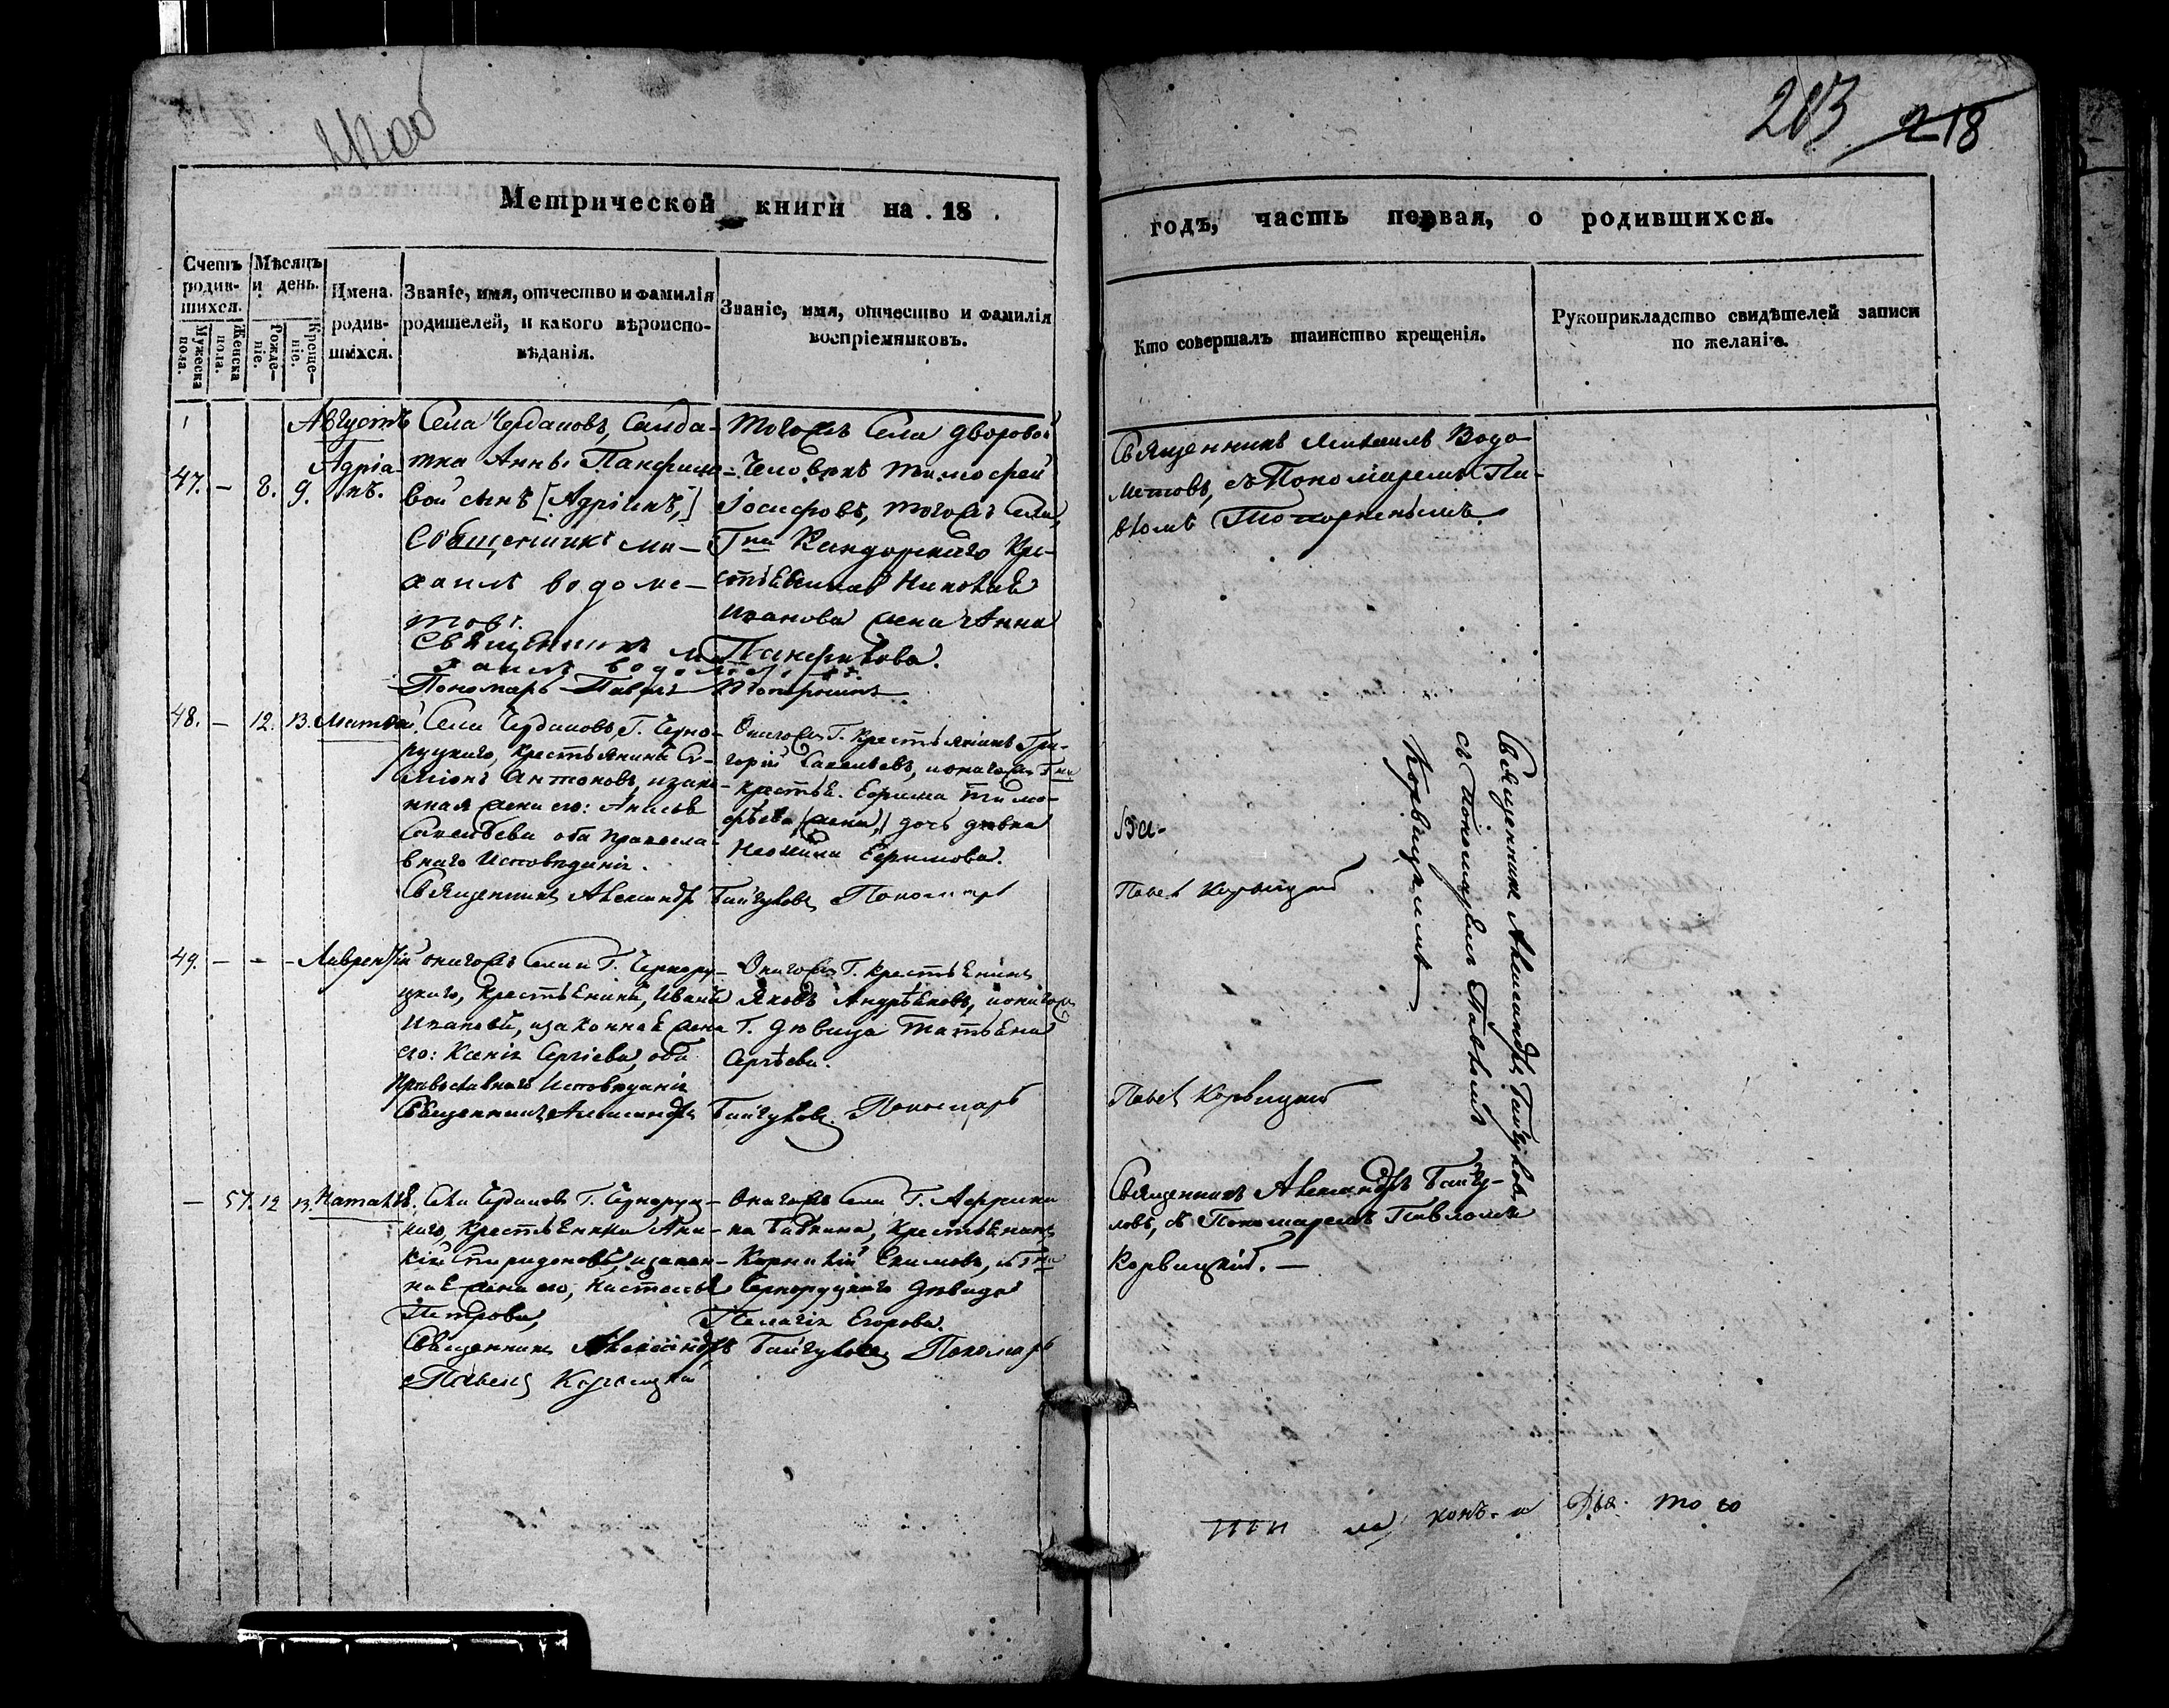 213 218
Метрической книги на 18
годъ, часть первая, о родившихся.
Счетъ родив-шихся.
Мужеска пола.
Женска пола.
Мѣсяцъ и день.
Рожде-ніе.
Креще-ніе.
Имена родив-шихся.
Званіе, имя, отчество и фамилія
родителей, и какого вѣроиспо-
вѣданія.
Званіе, имя, отчество и фамилія
воспріемниковъ.
Кто совершалъ таинство крещенія.
Рукоприкладство свидѣтелей записи
по желанію.
Августъ
47. — 8. 9. Адріа-
нъ.
Села Чердаковъ, Салда-
тки Анны Панфило-
вой сынъ [Адріанъ,]
Священникъ ми-
хаилъ водоле-
товъ.
Священникъ ми
хаилъ
Пономарь Павелъ
тогожъ Села дворовой
человѣкъ Тимофей
Іосифовъ, тогожъ Села,
Гна Кандорскаго Кре-
стьянина Николая
Иванова жена Анна
Панфилова.
Священникъ Михаилъ Водо-
летовъ, съ Пономаремъ Па-
вломъ
48. — 12. 13. Матвѣй.
Села Чердаковъ Г. Черно-
руцкаго, крестьянинъ Си-
меонъ Антоновъ, изако-
нная жена его:
Савельева оба правосла-
внаго Исповѣданія.
Священникъ Александръ Байгуловъ Пономарь
Онагожъ Г. крестьянинъ Гри-
горій Савельевъ, ионагожъ Гна
крестья. Ефима Тимо-
фѣева [жена,] дочь дѣвка
Неонила Ефимова.
Павелъ Корвицкій
Священникъ Александръ Байгуловъ,
съ Пономаремъ Павломъ
Корвицкимъ
49. — — — Лаврентій
онагожъ Села и Г. Чернору-
цкаго, крестьянинъ, Иванъ
Ивановъ, изаконная жена
его: Ксенія Сергіева, оба
Православнаго Исповѣданія
Священникъ Александръ Байгуловъ. Пономарь
Онагожъ Г. крестьянинъ
Яковъ Андрѣяновъ, ионагожъ
Г. дѣвица Татьяна
Сергѣева.
Павелъ Корвицкій
— 57. 12 13. Наталья.
Села Чердаковъ Г. Черноруц-
каго, крестьянина Ани-
кій Спиридоновъ, изакон-
ная жена его, Настасья
Петрова,
Священникъ Александръ Байгуловъ Пономарь
Павелъ Корвицкій
Онагожъ Села Г.
крестьянинъ
Корнилій Екимовъ, и Гна
Черноруцкаго дѣвица
Пелагія Егорова.
Священникъ Александръ Байгу-
ловъ, съ Пономаремъ Павломъ
Корвицкій. —